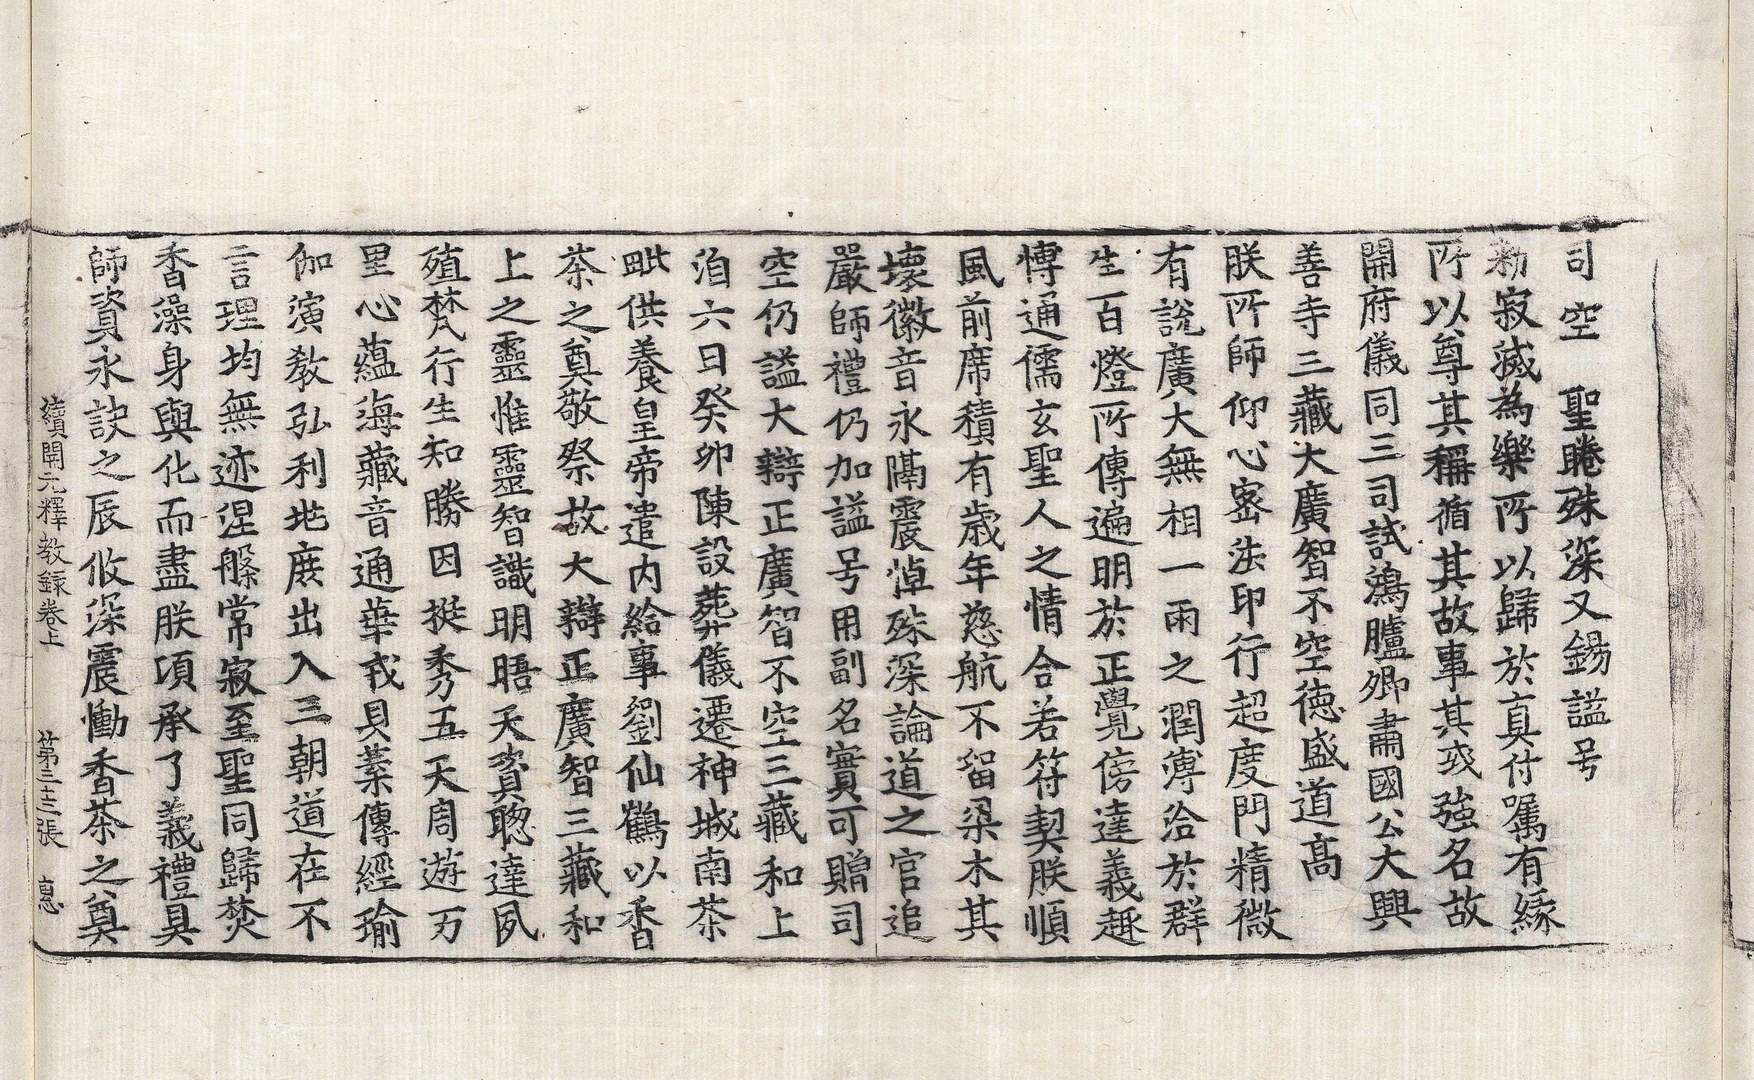 司空　聖睠殊深又錫謚号
勑寂滅為樂所以歸於真付囑有緣
所以尊其稱循其故事其或強名故
開府儀同三司試鴻臚卿肅國公大興
善寺三藏大廣智不空德盛道高
朕所師仰心密法印行超度門精微
有說廣大無相一雨之潤溥洽於群
生百燈所傳遍明於正覺傍達義趣
愽通儒玄聖人之情合若符契朕順
風前席積有歲年慈航不留梁木其
壞徽音永隔震悼殊深論道之官追
嚴師禮仍加謚号用副名實可贈司
空仍謚大辯正廣智不空三藏和上
洎六日癸卯陳設葬儀遷神城南荼
毗供養皇帝遣内給事劉仙鶴以香
茶之奠敬祭故大辯正廣智三藏和
上之靈惟靈智識明晤天資聰達夙
殖梵行生知勝因挺秀五天周遊万
里心蘊海藏音通華戎貝葉傳經瑜
伽演教弘利地庶出入三朝道在不
言理均無迹涅槃常寂至聖同歸焚
香澡身與化而盡朕項承了義禮具
師資永訣之辰攸深震慟香茶之奠
續開元釋教錄卷上　第三十二張　惠